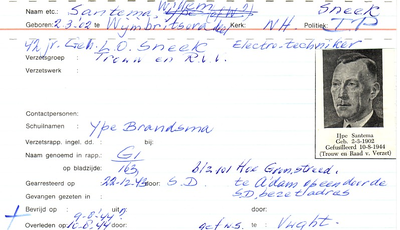 Naam etc.: Santema Willem Sneek
Geboren: 2.3.'02 Wijmbritseradeel Kerk: NH Politiek:
42 jr. Geh. L.O. Sneek Electro-techniker
Verzetsgroep : Trouw en R.v.V.
Verzetswerk :
Contactpersonen:
Schuilnamen : Ype Brandsma
Verzetsrapp. ingel. dd. bij:
Naam genoemd in rapp.: G1
op bladzijde: 163 blz 101 Hoe Grunstreed.
Gearresteerd op 22-12-43 door: S.D. te A'dam op een door de
Gevangen gezeten in : S.D. bezet adres
Bevrijd op : uit: door:
Overleden op 10-8-'44 door: gef. N.S. te: Vught.
Ype Santema
Geb. 2-3-1902
Gefusilleerd 10-8-1944
(Trouw en Raad v. Verzet)